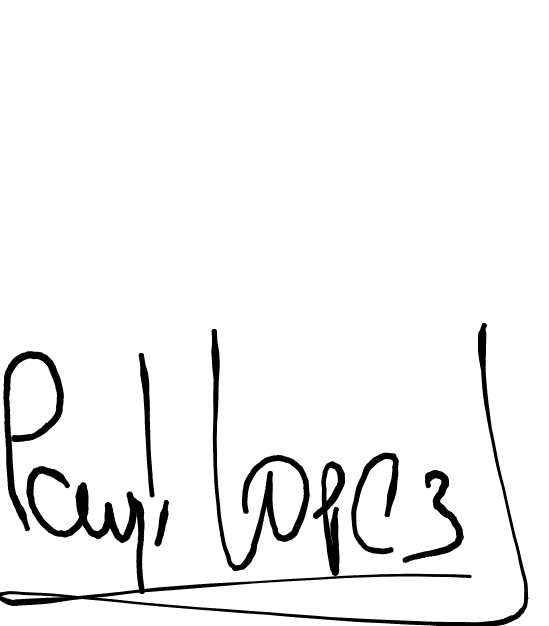 Paul Lopez